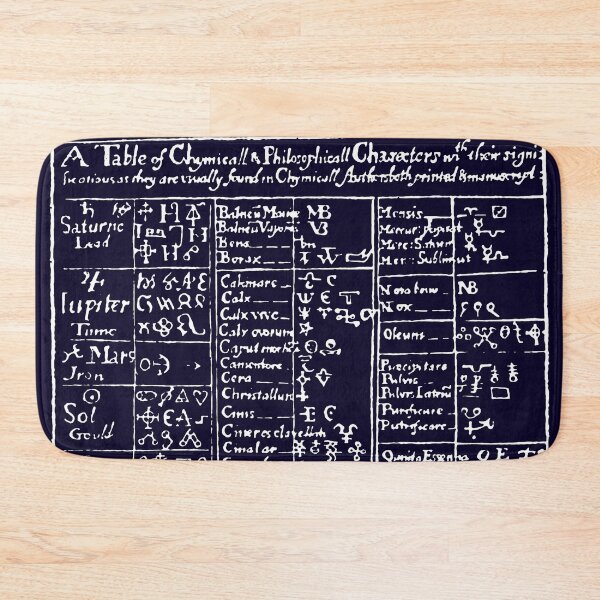 A Table of Chymicall & Philosophicall Charecters wth their signi
fications as they are usually found in Chymicall Authors both printed & manuscript
Saturne
Lead
Iupiter
Tinne
Mars
Iron
Sol
Gould
Balneū Mariæ MB
Balneū Vaporis VB
Bene
Borax
Calcinare
Calx
Calx vive
Calx ovorum
Caput mortū
Cera
Christallum
Cinis
Cineres clavellati
Mensis
Mercur: precipitat
Merc: Saturni
Mer: Sublimat
Nota bene NB
Nox
Oleum
Precipitare
Pulvis
Pulvis Laterū
Purificare
Putrificare
Quinta Essentia